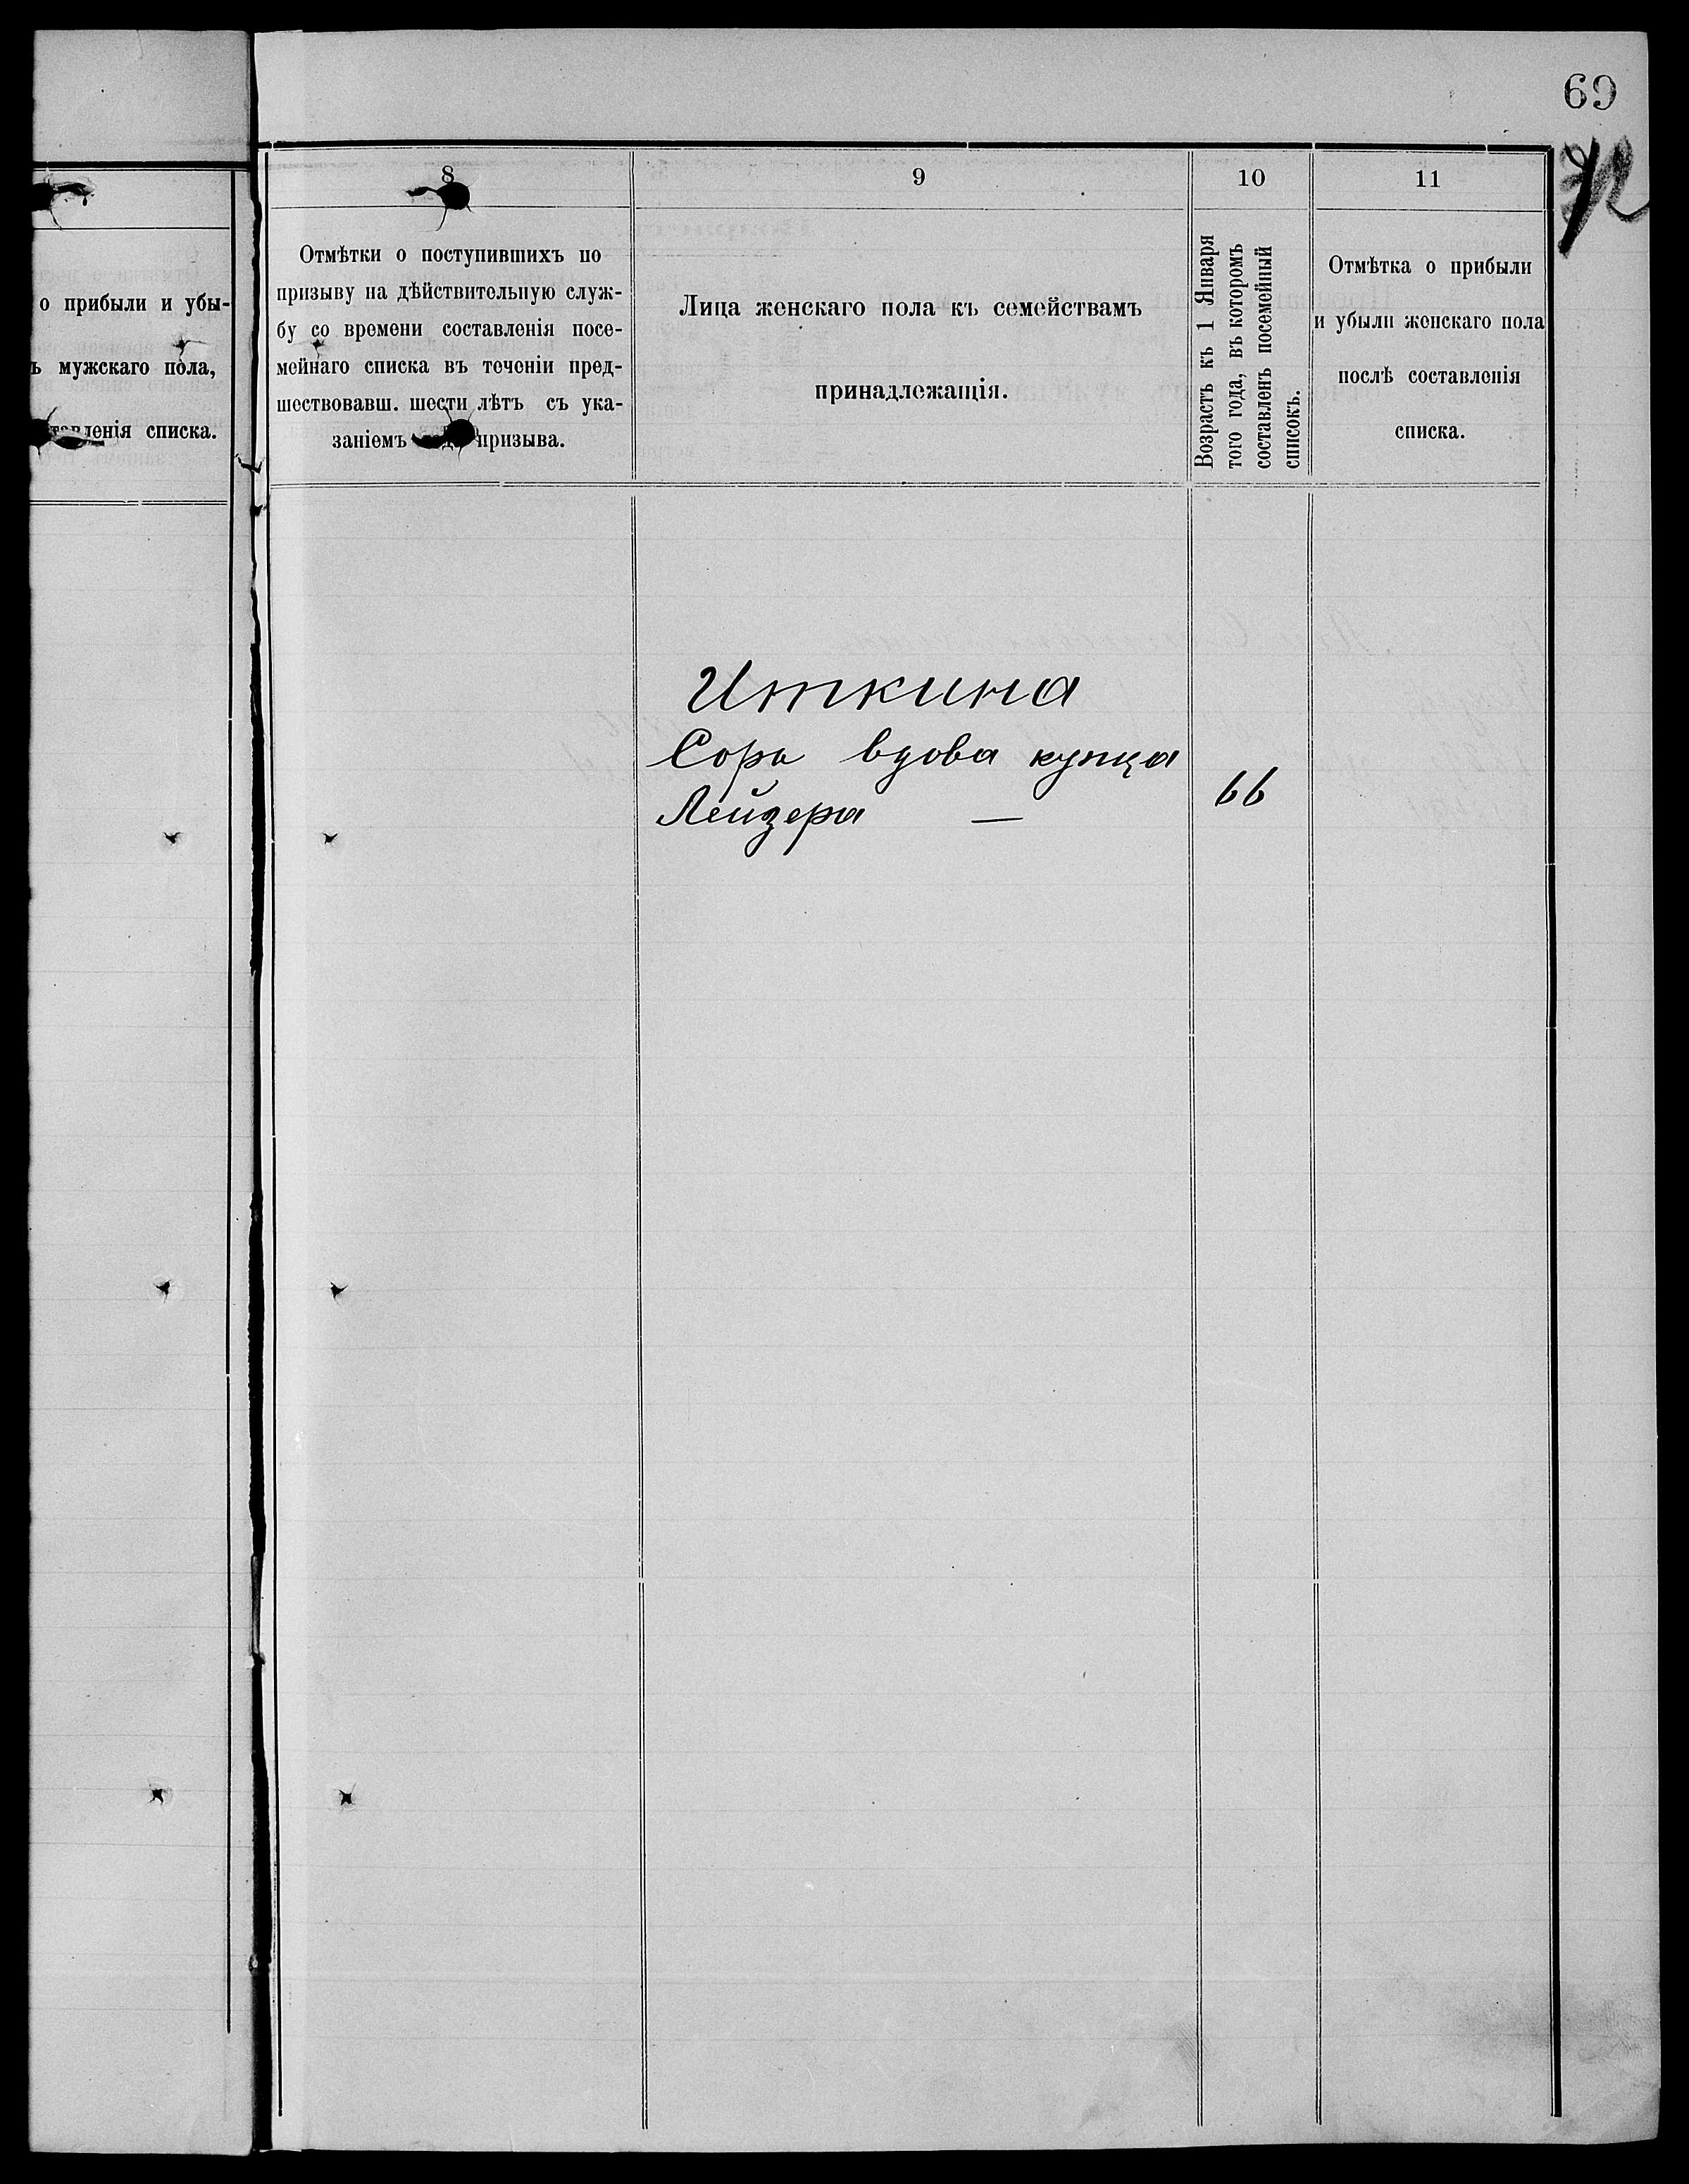 69
о прибыли и убы-
ъ мужскаго пола,
тавленія списка.
8
9
10
11
Отмѣтки о поступившихъ по
призыву на дѣйствительную служ-
бу со времени составленія посе-
мейнаго списка въ теченіи пред-
шествовавш. шести лѣтъ съ ука-
заніемъ призыва.
Лица женскаго пола къ семействамъ
принадлежащія.
Возрастъ къ 1 Января
того года, въ которомъ
составленъ посемейный
списокъ.
Отмѣтка о прибыли
и убыли женскаго пола
послѣ составленія
списка.
Иткина
Сора вдова купца
Лейзера —
66